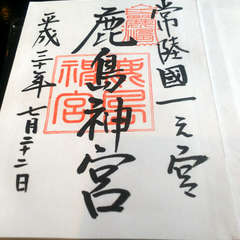 常陸國一之宮
鹿島神宮
平成三十年七月二十二日